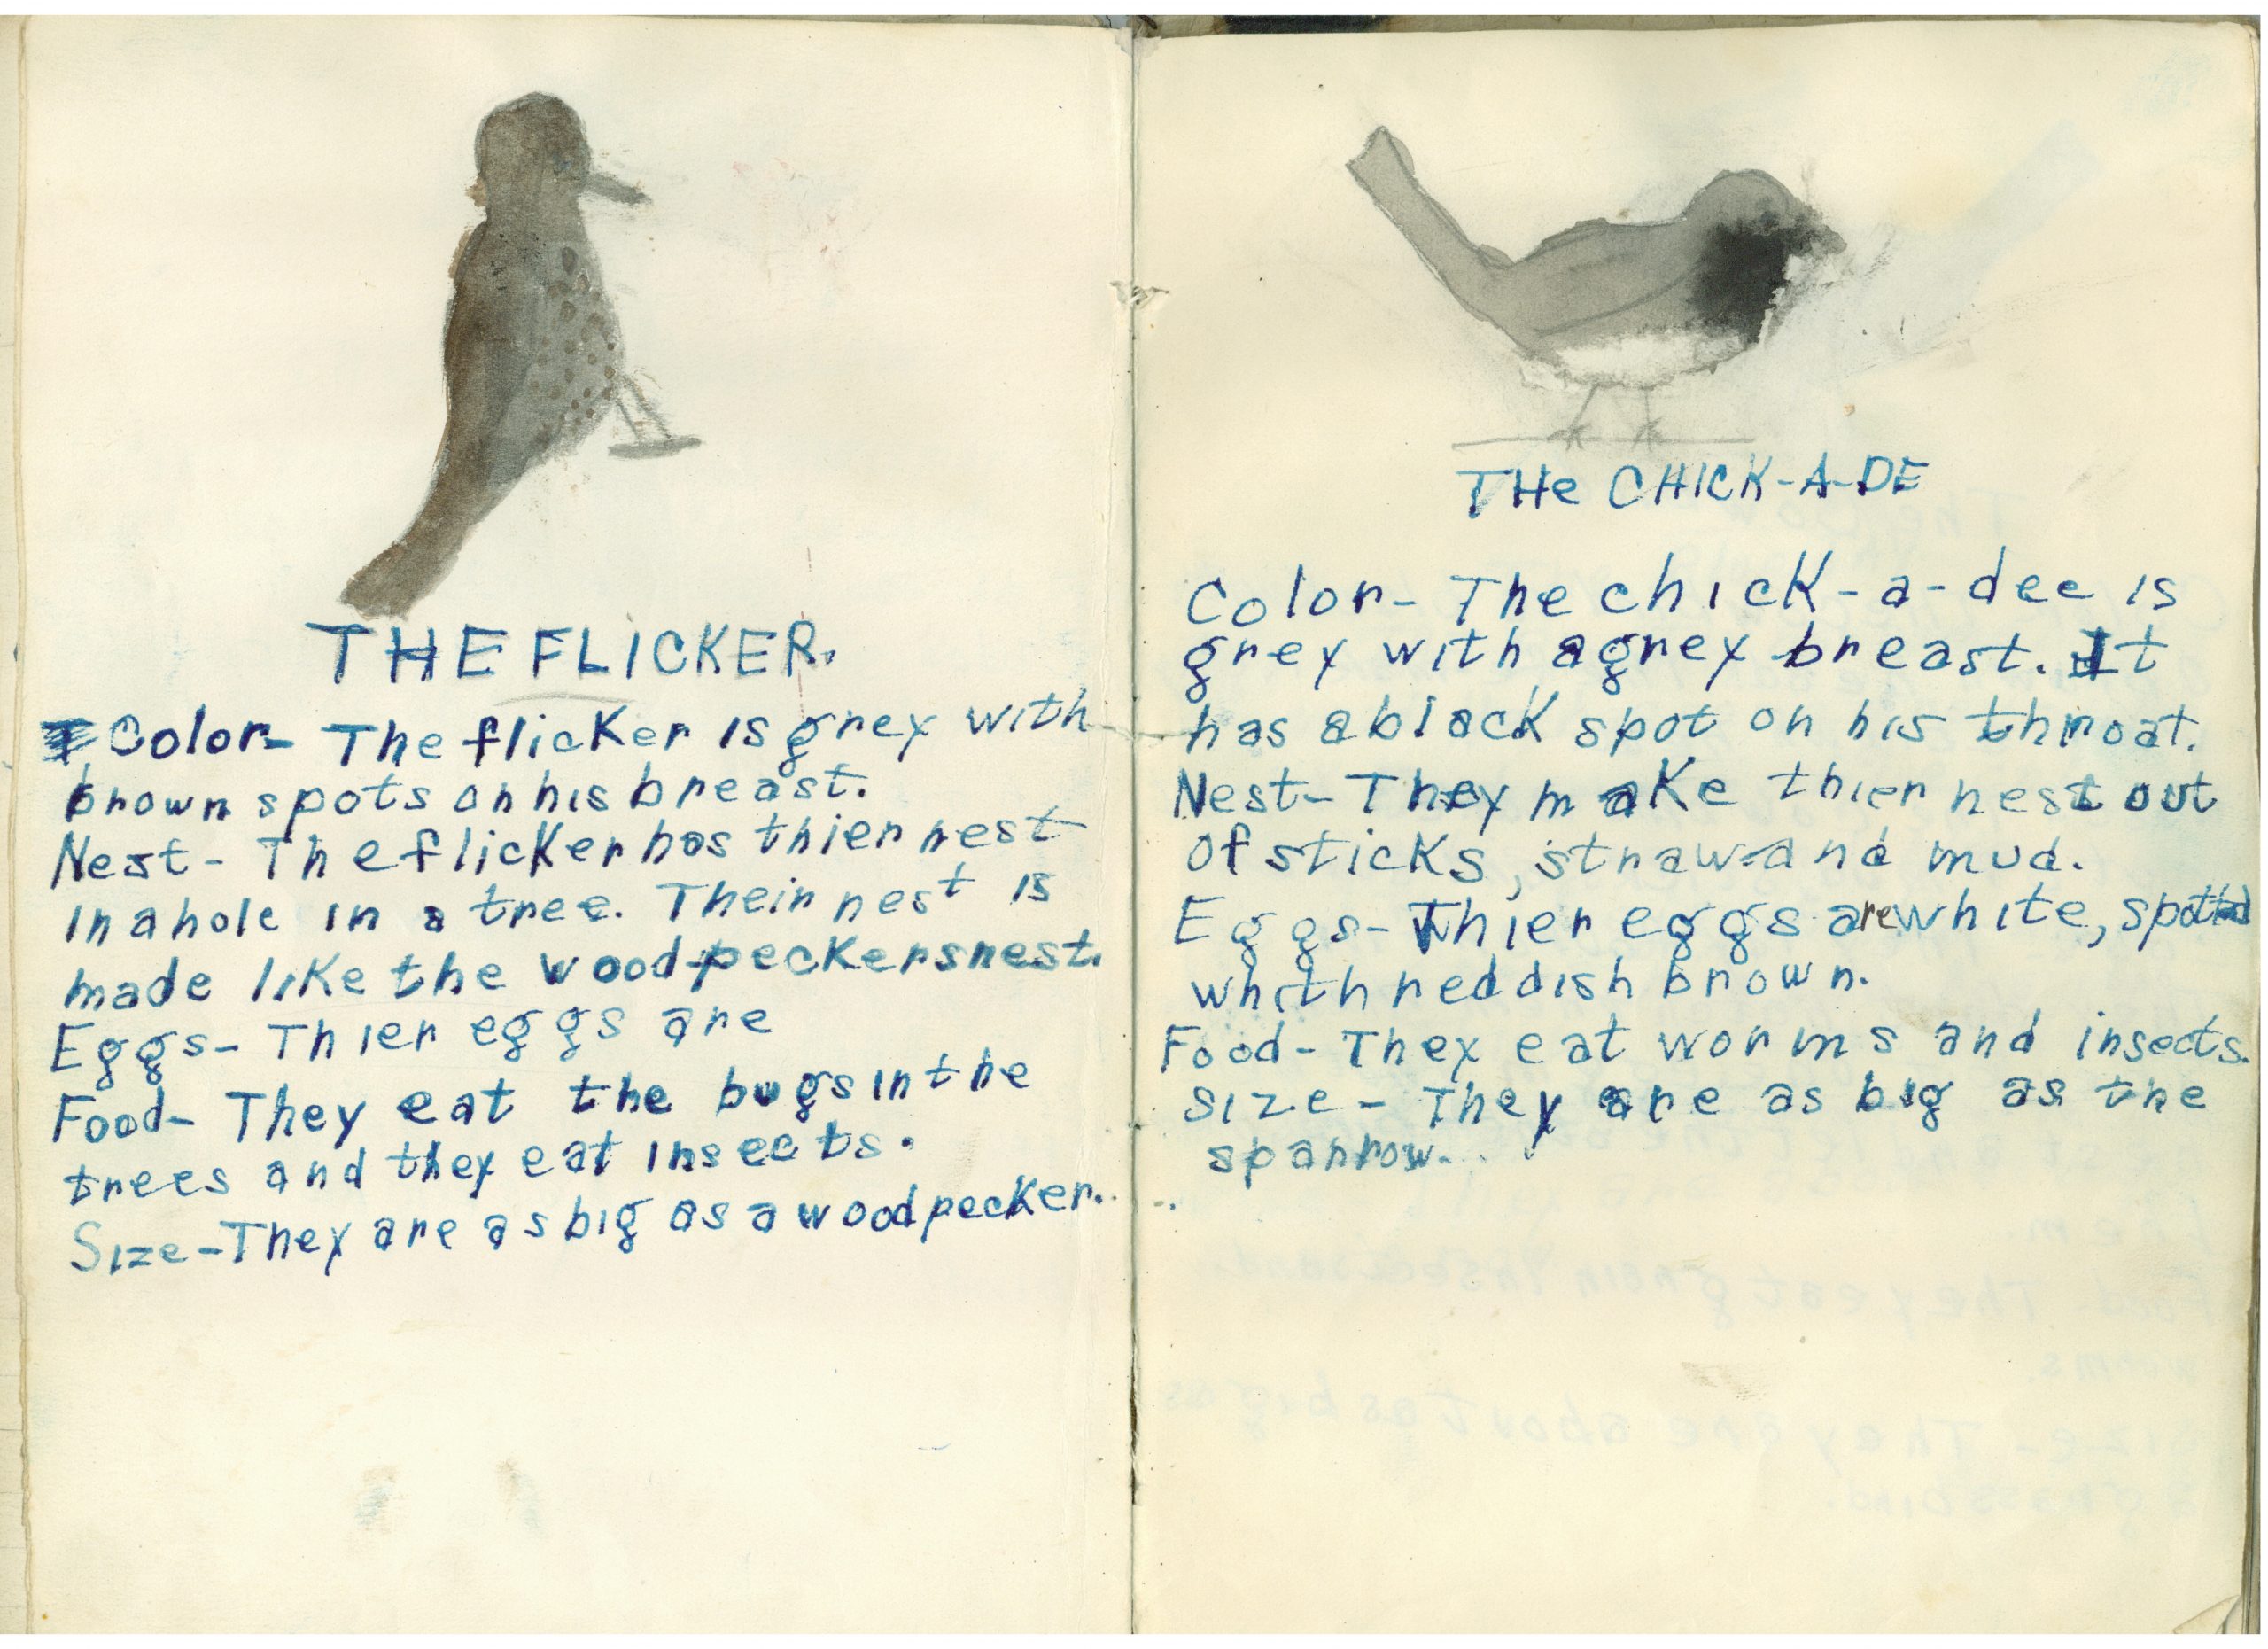 THE FLICKER.
Color- The flicker is grey with
brown spots on his breast.
Nest- The flicker has thier nest
in a hole in a tree. Their nest is
made like the wood-peckers nest.
Eggs- Thier eggs are
Food- They eat the bugs in the
trees and they eat insects.
Size-They are as big as a woodpecker.
THe CHICK-A-DE
Color- The chick-a-dee is
grey with a grey breast. It
has a black spot on his throat.
Nest- They make thier nest out
of sticks, straw and mud.
Eggs- Thier eggs are white, spotted
whith reddish brown.
Food- They eat worms and insects.
Size- They are as big as the
sparrow.